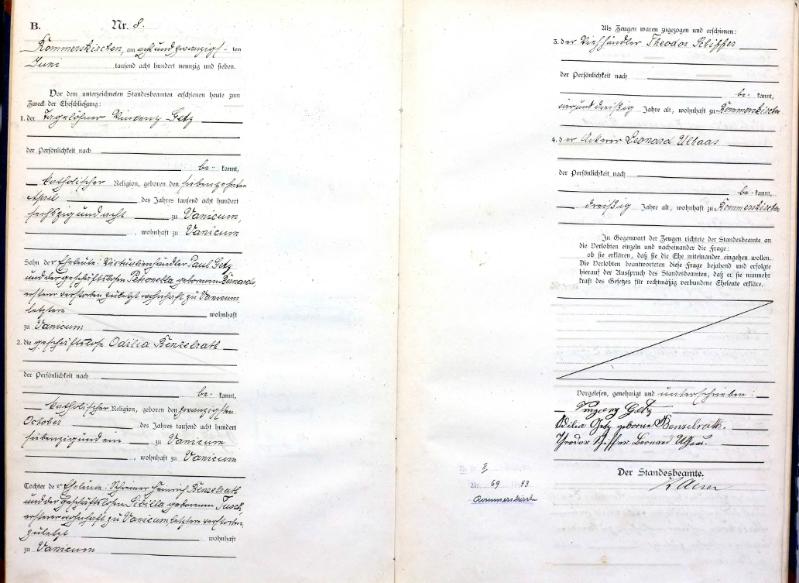 B. Nr. 8.
Kommerskirchen, am acht und zwanzigsten
Juni tausend acht hundert neunzig und sieben.
Vor dem unterzeichneten Standesbeamten erschienen heute zum
Zweck der Eheschließung:
1. der Tagelöhner Vincenz Getz
der Persönlichkeit nach
be kannt,
katholischer Religion, geboren den siebenzehnten
April des Jahres tausend acht hundert
sechszig und acht zu Vanicum,
, wohnhaft zu Vanicum
Sohn der Eheleute: Paul Getz
und der geschäftslosen Petronella geborenen
ersterer verstorben zuletzt wohnhaft zu Vanicum
letztere wohnhaft
zu Vanicum
2. die geschäftslose Odilia Benzelrath
der Persönlichkeit nach
be kannt,
katholischer Religion, geboren den zwanzigsten
October des Jahres tausend acht hundert
siebenzig und ein zu Vanicum
, wohnhaft zu Vanicum
Tochter der Eheleute: Schreiner Heinrich Benzelrath
und der geschäftslosen Sibilla geborenen
ersterer wohnhaft zu Vanicum letztere verstorben
zuletzt wohnhaft
zu Vanicum
Als Zeugen waren zugezogen und erschienen:
3. der Viehhändler Theodor
der Persönlichkeit nach
be kannt,
vier und dreißig Jahre alt, wohnhaft zu Kommerskirchen
4. der Ackerer Leonard Ulhaas
der Persönlichkeit nach
be kannt,
dreißig Jahre alt, wohnhaft zu Kommerskirchen
In Gegenwart der Zeugen richtete der Standesbeamte an
die Verlobten einzeln und nacheinander die Frage:
ob sie erklären, daß sie die Ehe miteinander eingehen wollen.
Die Verlobten beantworteten diese Frage bejahend und erfolgte
hierauf der Ausspruch des Standesbeamten, daß er sie nunmehr
kraft des Gesetzes für rechtmäßig verbundene Eheleute erkläre.
Vorgelesen, genehmigt und unterschrieben:
Getz
Odilia Getz geborene Benzelrath.
Theodor Leonard
Der Standesbeamte.
Nr. 69